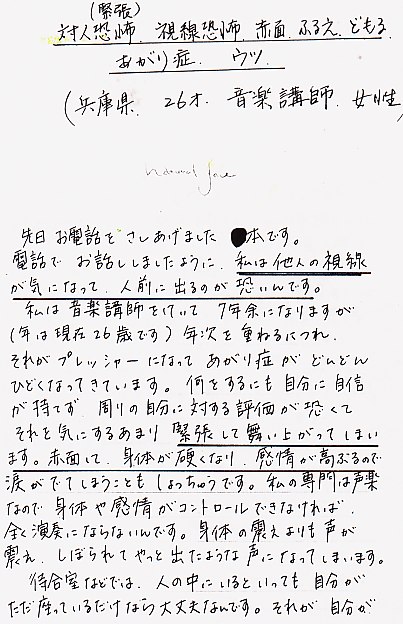 (緊張)
対人恐怖 視線恐怖 赤面 ふるえ どもる
あがり症 ウツ
(兵庫県 26才 音楽講師 女性
先日 お電話を さしあげました 本です。
電話で お話ししましたように、私は他人の視線
が気になって、人前に出るのが 恐いんです。
私は 音楽講師をしていて 7年余になりますが
(年は現在26歳です) 年次を 重ねるにつれ、
それが プレッシャーになって あがり症が どんどん
ひどくなってきています。何をするにも 自分に自信
が持てず 周りの自分に対する評価が恐くて
それを気にするあまり 緊張して舞い上がってしまい
ます。赤面して、身体が硬くなり、感情が高ぶるので
涙がでてしまうことも しょっちゅうです。私の専門は声楽
なので 身体や感情がコントロールできなければ、
全く演奏にならないんです。身体の震えよりも 声が
震え、しぼられて やっと出たような声に なってしまいます。
待合室などでは、人の中にいるといっても 自分が
ただ座っているだけなら大丈夫なんです。それが 自分が